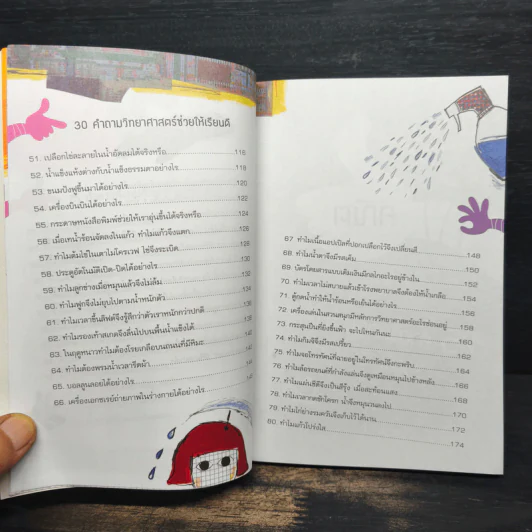 30 คำถามวิทยาศาสตร์ช่วยให้เรียนดี
51. เปลือกไข่ละลายในน้ำอัดลมได้จริงหรือ 116
52. น้ำแข็งแห้งต่างกับน้ำแข็งธรรมดาอย่างไร 118
53. ขนมปังฟูขึ้นมาได้อย่างไร 120
54. เครื่องบินบินได้อย่างไร 122
55. กระดาษหนังสือพิมพ์ช่วยให้เราอุ่นขึ้นได้จริงหรือ 124
56. เมื่อเทน้ำร้อนจัดลงในแก้ว ทำไมแก้วจึงแตก 126
57. ทำไมต้มไข่ในเตาไมโครเวฟ ไข่จึงระเบิด 128
58. ประตูอัตโนมัติเปิด-ปิดได้อย่างไร 130
59. ทำไมลูกข่างเมื่อหมุนแล้วจึงไม่ล้ม 132
60. ทำไมทูกจึงไม่ยุบไปตามน้ำหนักตัว 134
61. ทำไมเวลาขึ้นลิฟต์จึงรู้สึกว่าตัวเราหนักกว่าปกติ 136
62. ทำไมรองเท้าสเกตจึงลื่นไปบนพื้นน้ำแข็งได้ 138
63. ในฤดูหนาวทำไมต้องโรยเกลือบนถนนที่มีหิมะ 140
64. ทำไมต้องพรมน้ำเวลารีดผ้า 142
65. บอลลูนลอยได้อย่างไร 144
66. เครื่องเอกซเรย์ถ่ายภาพในร่างกายได้อย่างไร 146
67. ทำไมเนื้อแอปเปิลที่ปอกเปลือกไว้จึงเปลี่ยนสี 148
68. ทำไมน้ำตาจึงมีรสเค็ม 150
69. บัตรโดยสารแบบเติมเงินมีกลไกอะไรอยู่ข้างใน 152
70. ทำไมเวลาไม่สบายแล้วเข้าโรงพยาบาลจึงต้องให้น้ำเกลือ 154
71. ตู้กดน้ำทำให้น้ำร้อนหรือเย็นได้อย่างไร 156
72. เครื่องเล่นในสวนสนุกมีหลักการวิทยาศาสตร์อะไรซ่อนอยู่ 158
73. กระสุนปืนที่ยิงขึ้นฟ้า จะไปไหนกันนะ 160
74. ทำไมกิมจิจึงมีรสเปรี้ยว 162
75. ทำไมจอโทรทัศน์ที่ฉายอยู่ในโทรทัศน์จึงกะพริบ 164
76. ทำไมล้อรถยนต์ที่กำลังแล่นจึงดูเหมือนหมุนไปข้างหลัง 166
77. ทำไมแผ่นซีดีจึงเป็นสีรุ้ง เมื่อสะท้อนแสง 168
78. ทำไมเวลากดชักโครก น้ำจึงหมุนวนลงไป 170
79. ทำไมไก่ย่างรมควันจึงเก็บไว้ได้นาน 172
80. ทำไมแก้วโปร่งใส 174